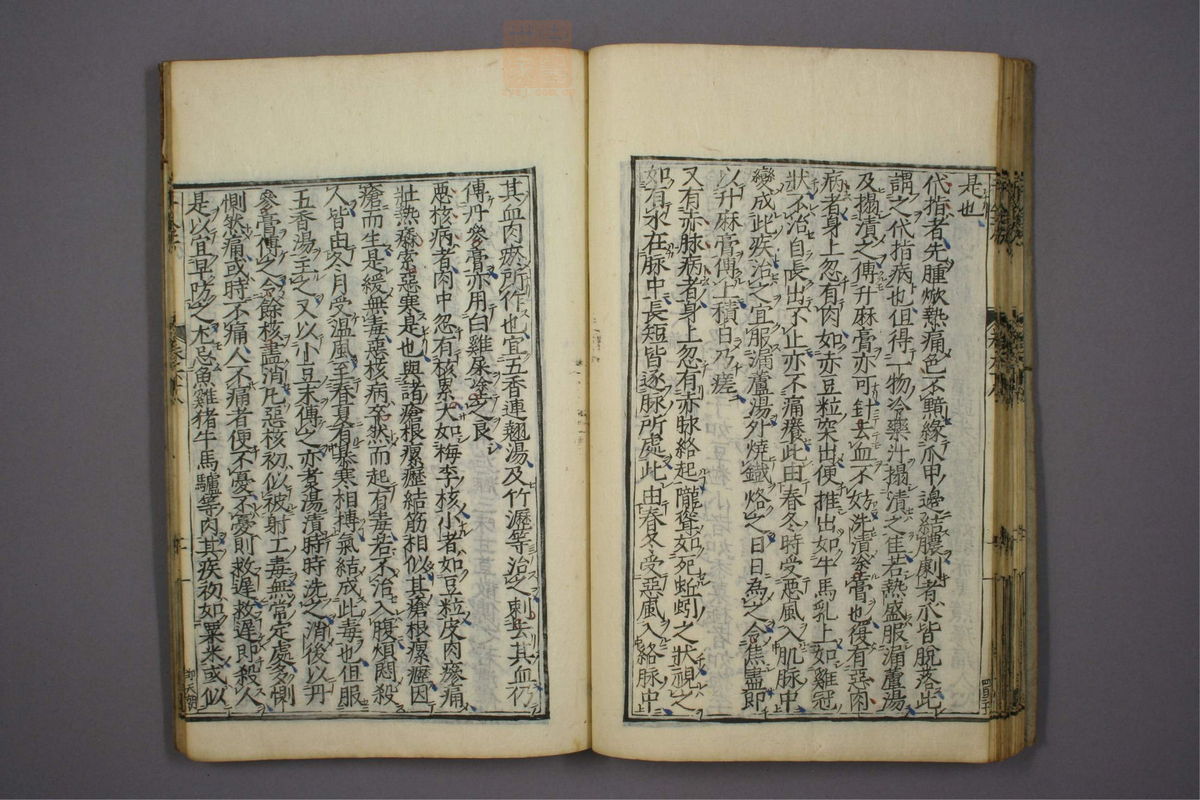 是也
代指者先腫焮熱痛色不黯緣爪甲邊結膿劇者爪皆脫落此
謂之代指病也但得一物冷藥汁搨漬之佳若熱盛服漏蘆湯
及搨漬之傅升麻膏亦可針去血不妨洗漬塗膏也復有惡肉
病者身上忽有肉如赤豆粒突出便推出如牛馬乳上如雞冠
狀不治自長出不止亦不痛癢此由春冬時受惡風入肌脉中
變成此疾治之宜服漏蘆湯外燒鐵烙之日日為之令焦盡即
以升麻膏傅上積日乃瘥
又有赤脉病者身上忽有赤脉絡起隴聳如死蚯蚓之狀視之
如有水在脉中長短皆逐脉所處此由春冬受惡風入絡脉中
其血肉瘀所作也宜五香連翹湯及竹瀝等治之刺去其血仍
傅丹參膏亦用白雞屎塗之良
惡核病者肉中忽有核累大如梅李核小者如豆粒皮肉瘮痛
壯熱瘮索惡寒是也與諸瘡根瘰癧結筋相似其瘡根瘰癧因
瘡而生是緩無毒惡核病卒然而起有毒若不治入腹煩悶殺
人皆由冬月受溫風至春夏有暴寒相搏氣結成此毒也但服
五香湯主之又以小豆末傅之亦煮湯漬時時洗之消後以丹
參膏傅之令餘核盡消凡惡核初似被射工毒無常定處多惻
惻然痛或時不痛人不痛者便不憂不憂則救遲救遲即殺人
是以宜早防之尤忌魚雞猪牛馬驢等肉其疾初如粟米或似